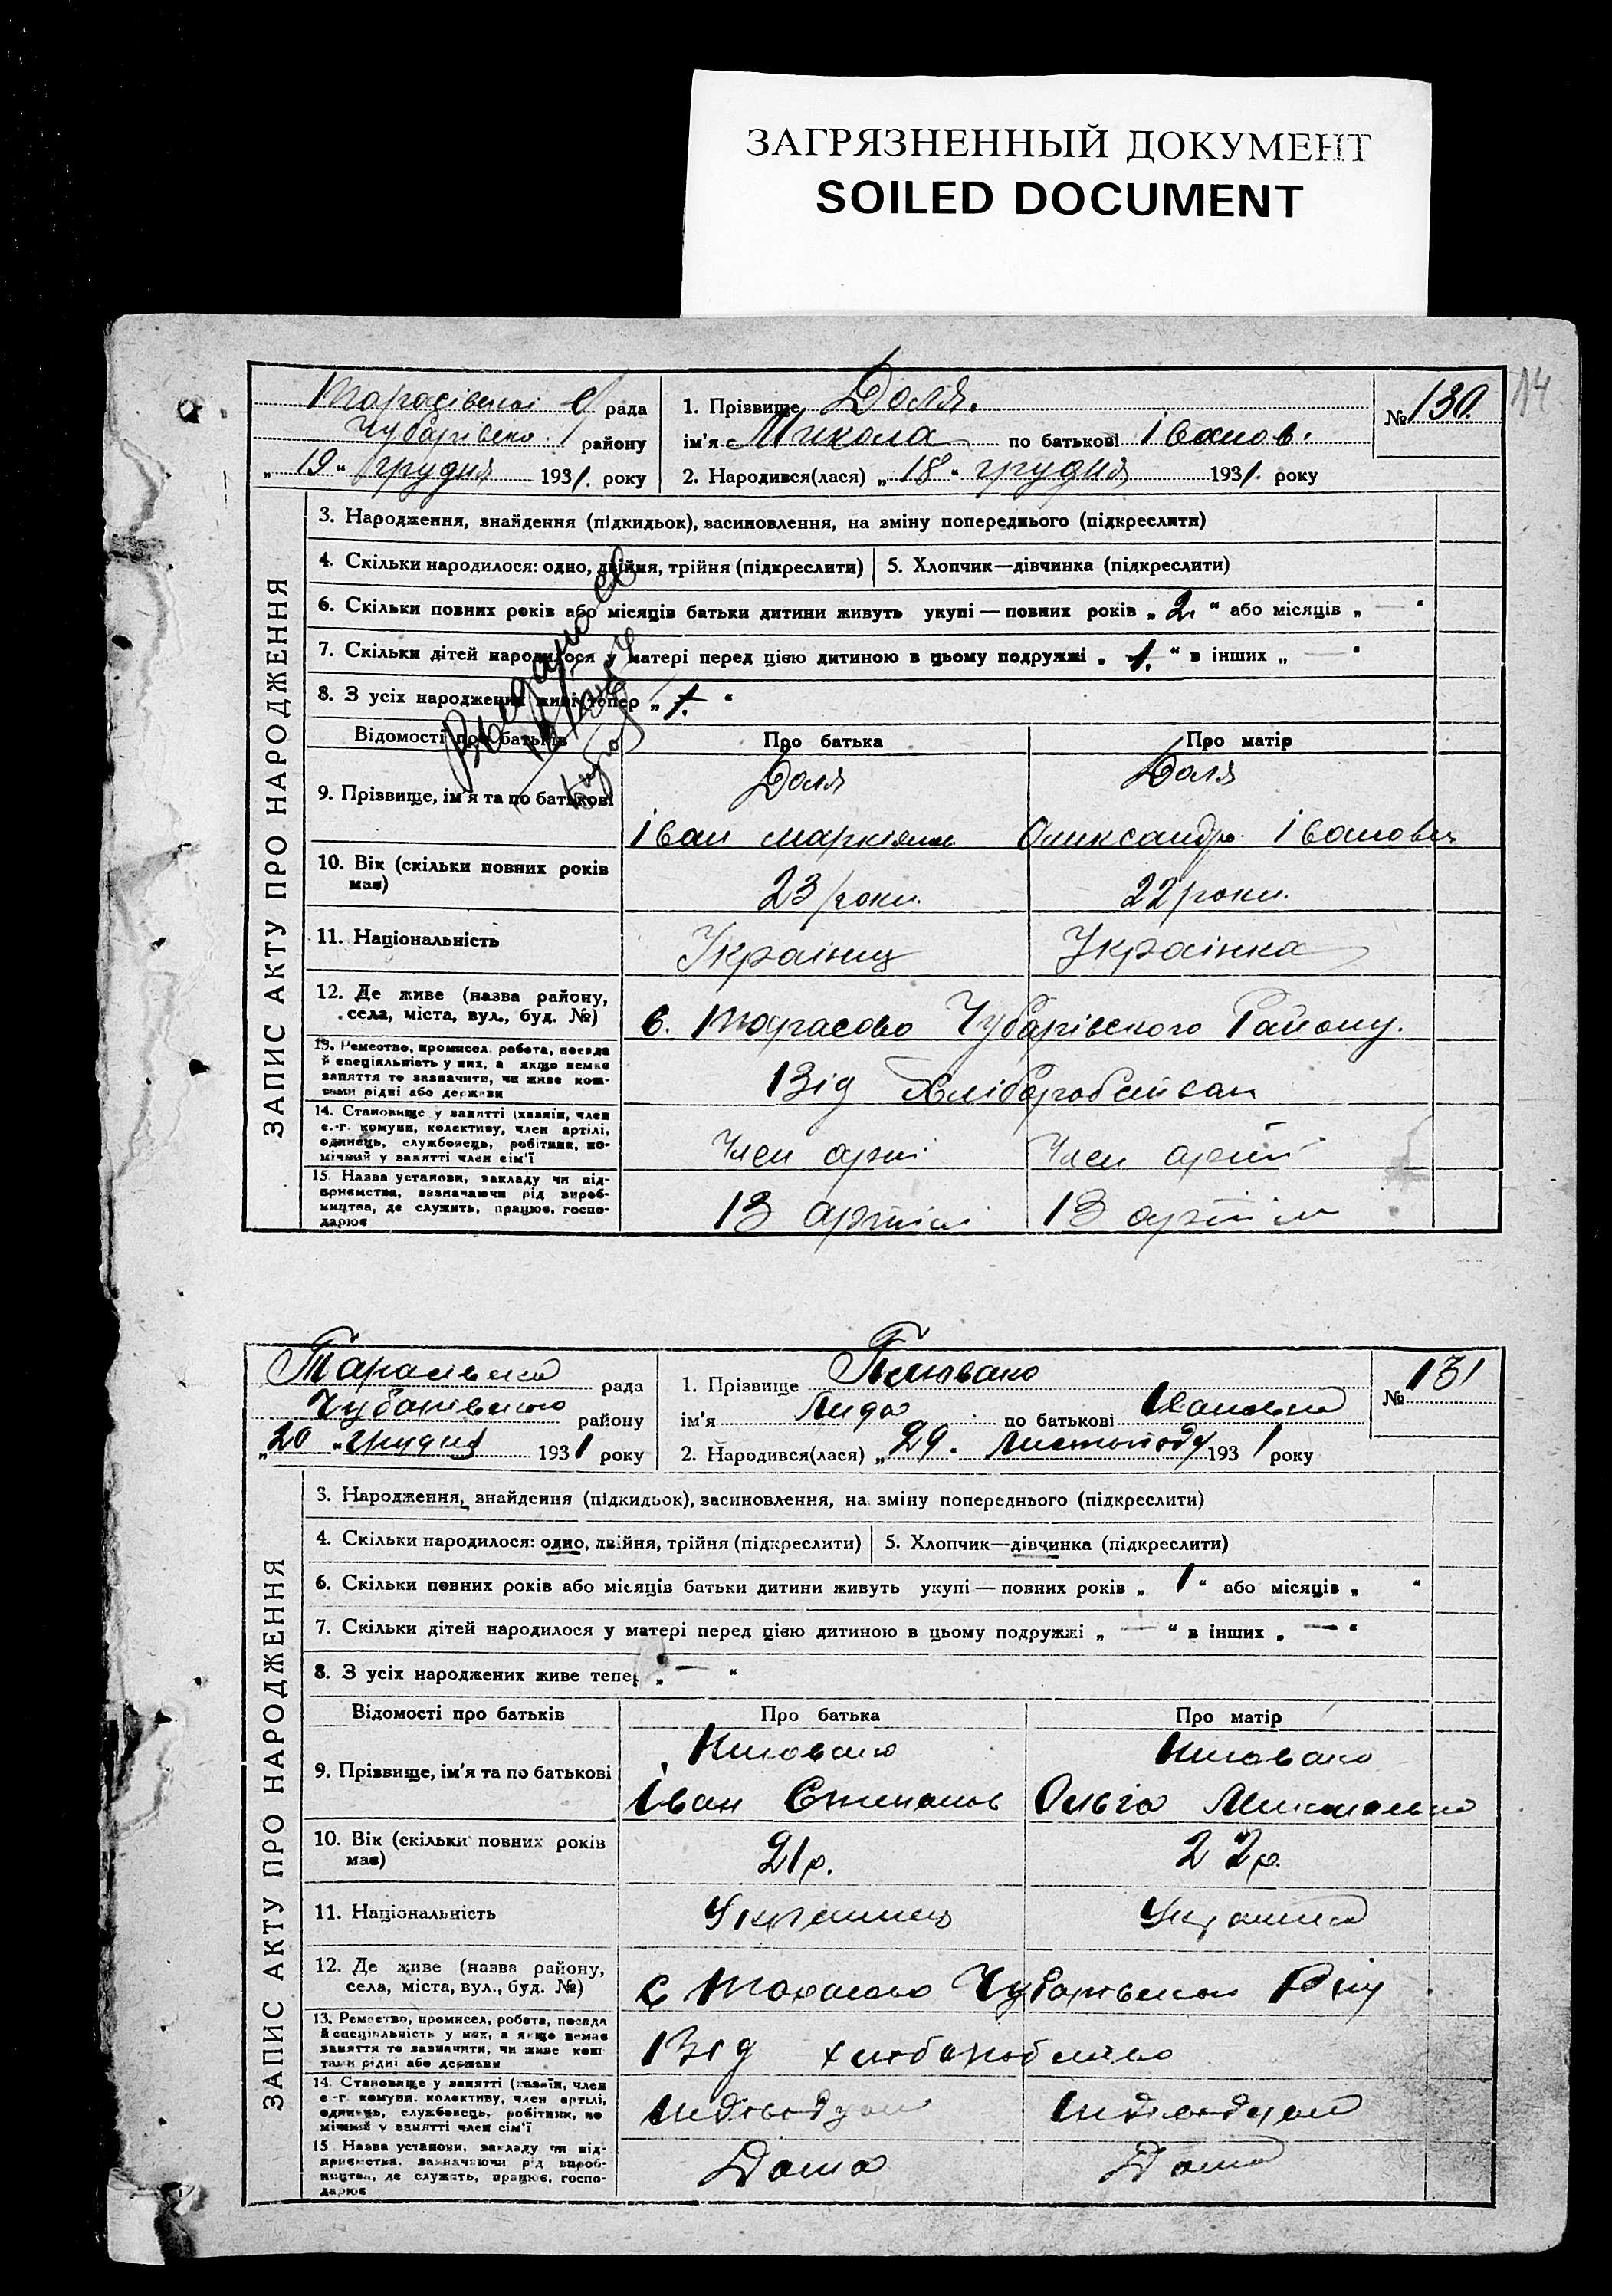 ЗАГРЯЗНЕННЫЙ ДОКУМЕНТ
SOILED DOCUMENT
14
рада
Чубарівськ. району
„19“ грудня 1931. року
1. Прізвище Доля.
ім'я Микола по батькові Іванов.
2. Народився(лася) „18“ грудня 1931. року
№ 130.
ЗАПИС АКТУ ПРО НАРОДЖЕННЯ
3. Народження, знайдення (підкидьок), засиновлення, на зміну попереднього (підкреслити)
4. Скільки народилося: одно, двійня, трійня (підкреслити) 5. Хлопчик—дівчинка (підкреслити)
6. Скільки повних років або місяців батьки дитини живуть укупі — повних років „2.“ або місяців „—“
7. Скільки дітей народилося у матері перед цією дитиною в цьому подружжі „1.“ в інших „—“
8. З усіх народжених живі тепер „1.“
Відомості про батьків Про батька Про матір
Доля Доля
9. Прізвище, ім'я та по батькові
Іван Олександра
10. Вік (скільки повних років має) 23 роки. 22 роки.
11. Національність Українец Українка
12. Де живе (назва району, села, міста, вул., буд. №) с. Тарасово Чубарівського Району.
13. Ремество, промисел, робота, посада й спеціяльність у них, а якщо немає заняття то зазначити, чи живе коштами рідні або держави
Від
14. Становище у занятті (хазяїн, член с.-г. комуни, колективу, член артілі, одинець, службовець, робітник, помічний у занятті член сім'ї
Член арті Член
15. Назва установи, закладу чи підприємства, зазначаючи рід виробництва, де служить, працює, господарює
Із артіли Із артіли
Тарасівська рада
району
„20“ грудня 1931 року
1. Прізвище
ім'я Лида по батькові Івановна
2. Народився(лася) „29. Листопаду 1931 року
№ 131
ЗАПИС АКТУ ПРО НАРОДЖЕННЯ
3. Народження, знайдення (підкидьок), засиновлення, на зміну попереднього (підкреслити)
4. Скільки народилося: одно, двійня, трійня (підкреслити) 5. Хлопчик—дівчинка (підкреслити)
6. Скільки повних років або місяців батьки дитини живуть укупі — повних років „1“ або місяців „ “
7. Скільки дітей народилося у матері перед цією дитиною в цьому подружжі „—“ в інших „—“
8. З усіх народжених живе тепер „—“
Відомості про батьків Про батька Про матір
9. Прізвище, ім'я та по батькові
Іван Степанов Ольга
10. Вік (скільки повних років має) 21 р. 22 р.
11. Національність
12. Де живе (назва району, села, міста, вул., буд. №) с Тарасово
13. Ремество, промисел, робота, посада й спеціяльність у них, а якщо немає заняття то зазначити, чи живе коштами рідні або держави
Від
14. Становище у занятті (хазяїн, член с.-г. комуни, колективу, член артілі, одинець, службовець, робітник, помічний у занятті член сім'ї
15. Назва установи, закладу чи підприємства, зазначаючи рід виробництва, де служить, працює, господарює
Дома Дома